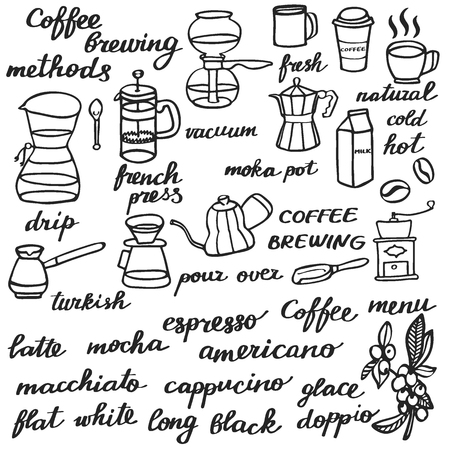 Coffee
brewing
methods
fresh
COFFEE
natural
cold
hot
vacuum
MILK
moka pot
french
press
drip
COFFEE
BREWING
pour over
turkish
espresso
Coffee menu
latte mocha
americano
macchiato cappucino glace
flat white long black doppio